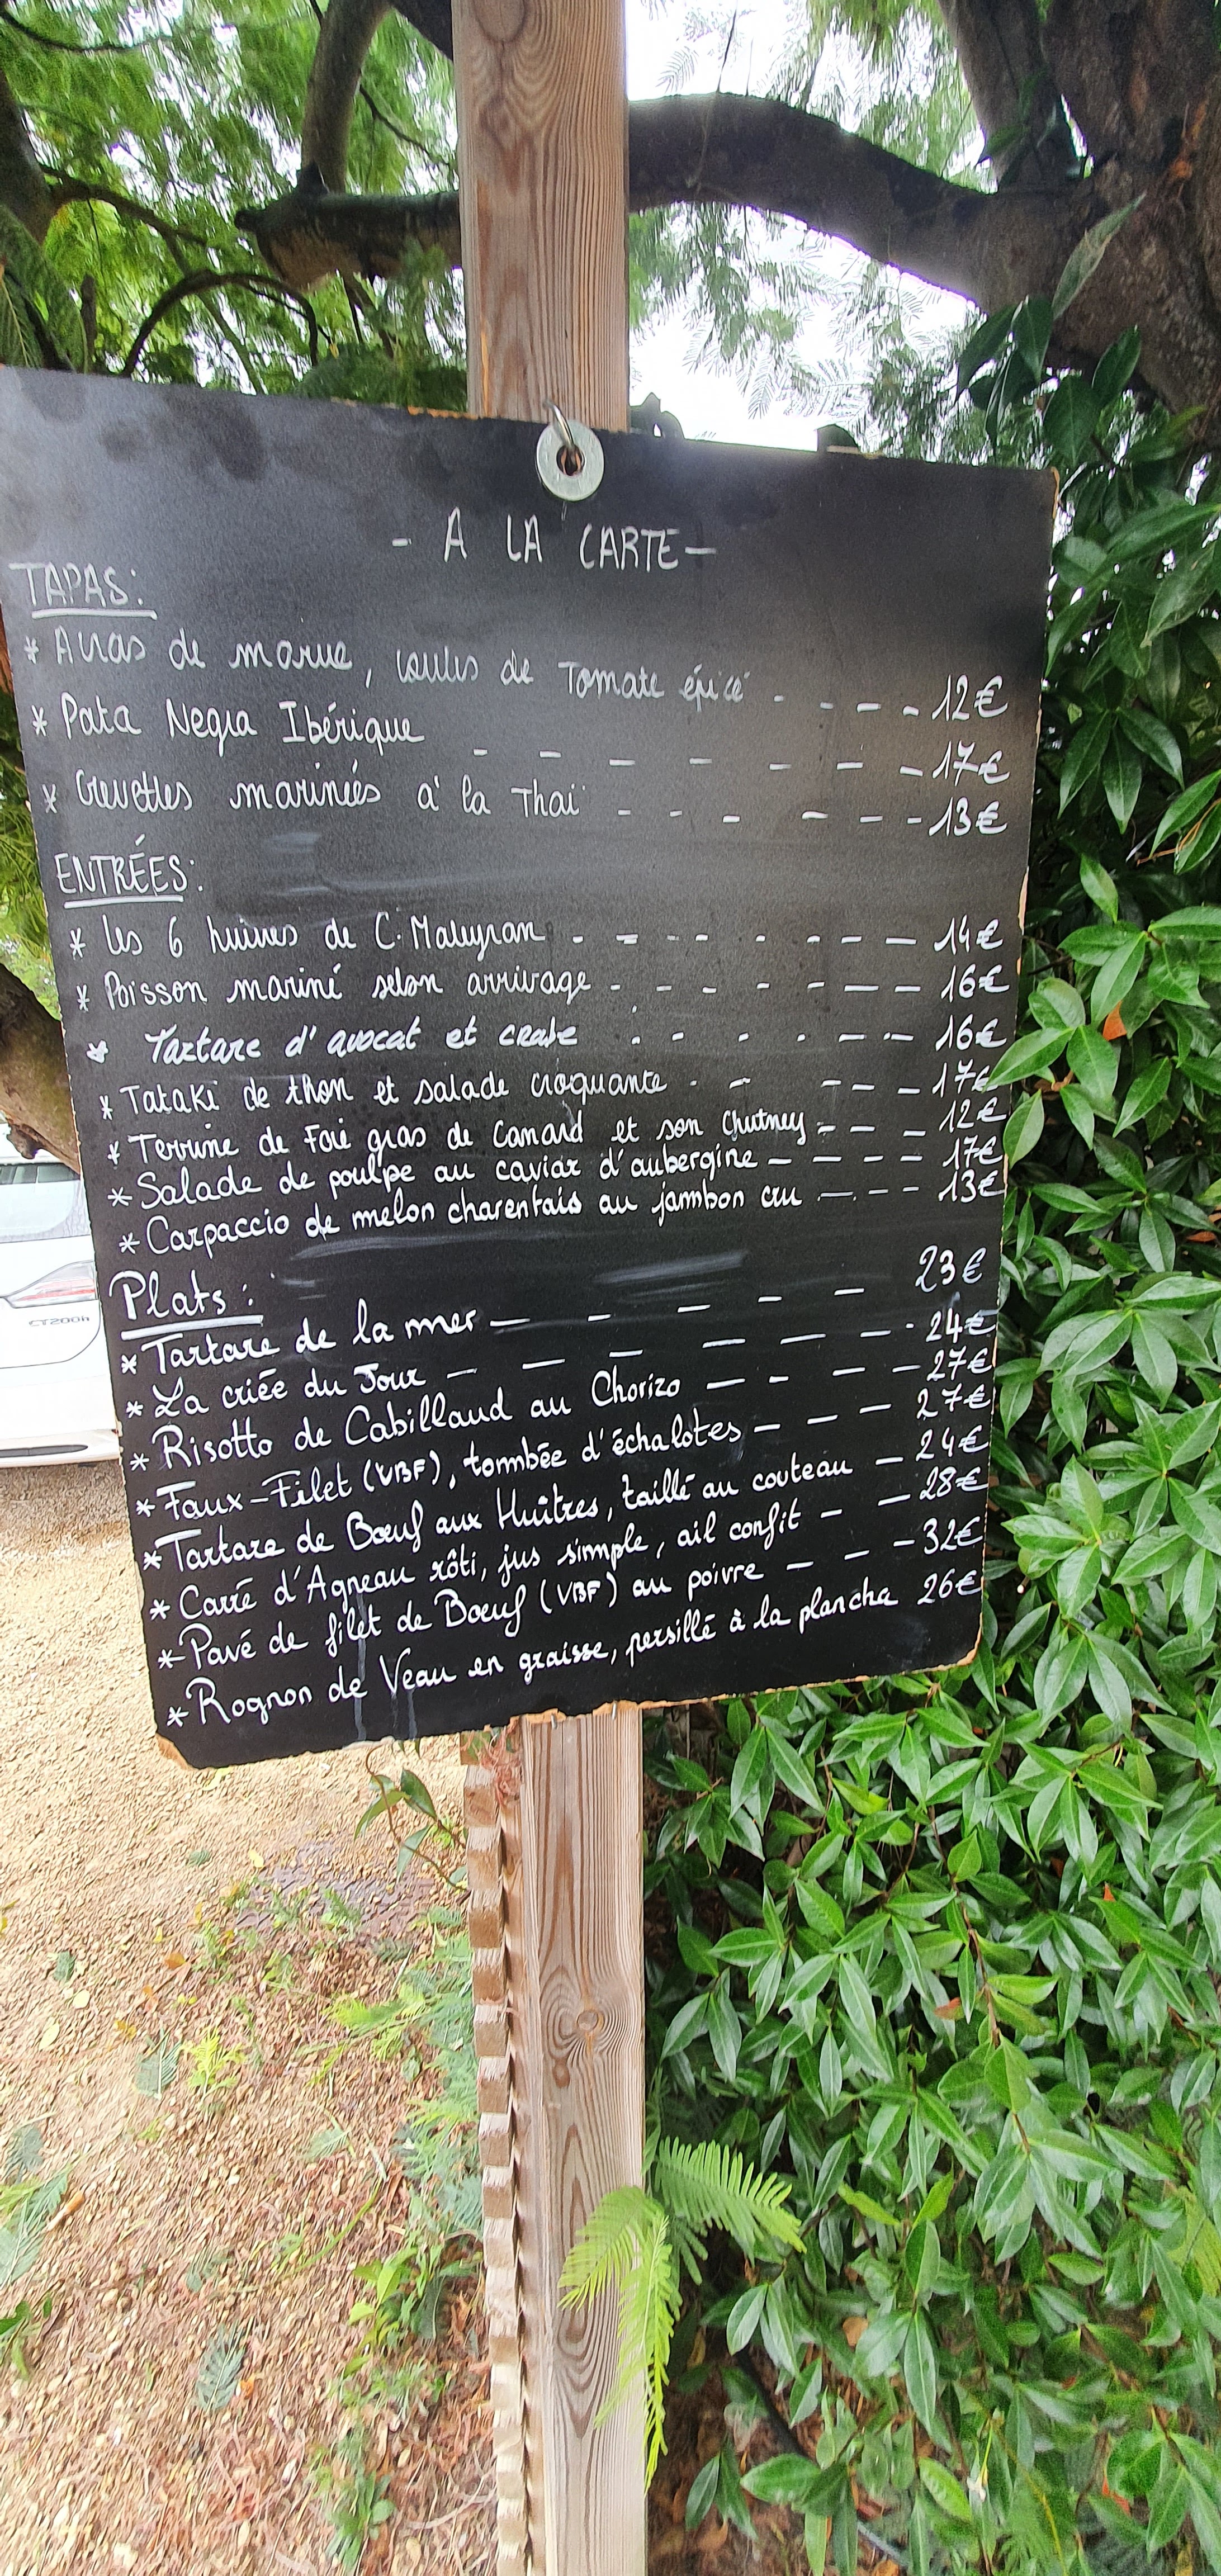 - A LA CARTE -
TAPAS:
* Acras de morue, coulis de Tomate épicé - - - - 12€
* Pata Negra Ibérique - - - - - - - 17€
* Crevettes marinées à la Thaï - - - - - - 13€
ENTRÉES:
* Les 6 huîtres de C. Maleyran - - - - - - - - 14€
* Poisson mariné selon arrivage - - - - - - - 16€
* Tartare d'avocat et crabe - - - - - - - 16€
* Tataki de thon et salade croquante - - - - - 17€
* Terrine de Foie gras de Canard et son Chutney - - - 12€
* Salade de poulpe au caviar d'aubergine - - - - 17€
* Carpaccio de melon charentais au jambon cru - - - 13€
Plats:
* Tartare de la mer - - - - - 23€
* La criée du Jour - - - - - - - 24€
* Risotto de Cabillaud au Chorizo - - - - - 27€
* Faux-Filet (VBF), tombée d'échalotes - - - - 27€
* Tartare de Bœuf aux Huîtres, taillé au couteau - 24€
* Carré d'Agneau rôti, jus simple, ail confit - - 28€
* Pavé de filet de Bœuf (VBF) au poivre - - - 32€
* Rognon de Veau en graisse, persillé à la plancha 26€
CT200h